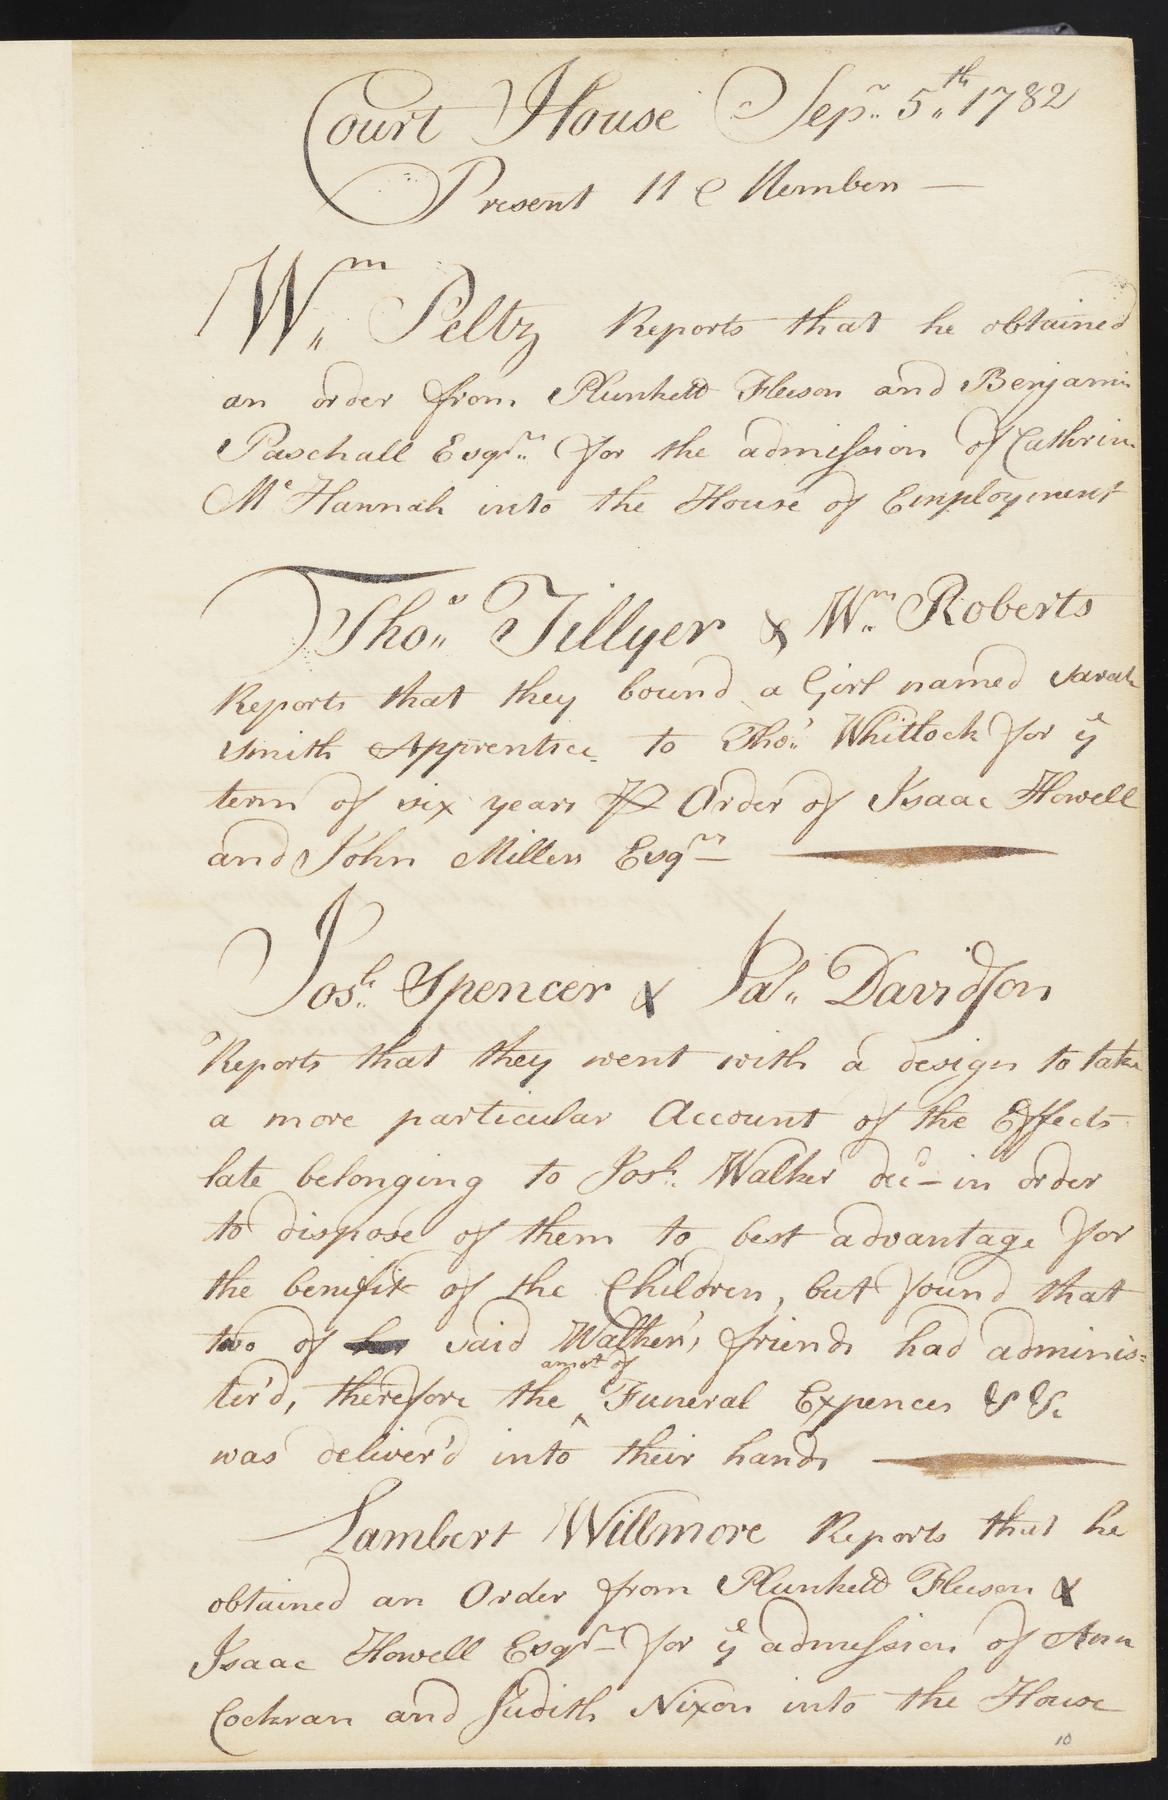 Court House Sepr. 5th 1782
Present 11 Members —
Wm Peltz Reports that he obtained
an order from Plunkett Fleeson and Benjamin
Paschall Esqrs. for the admission of Cathrine
Mc Hannah into the House of Employment
Thos. Tillyer & Wm. Roberts
Reports that they bound a Girl named Sarah
Smith Apprentice to Thos. Whitlock for ye
term of six years ⅌ Order of Isaac Howell
and John Millers Esqrs
Josh. Spencer & Jas. Davidson
Reports that they went with a design to take
a more particular Account of the Effects
late belonging to Josh. Walker decd — in order
to dispose of them to best advantage for
the benifit of the Children, but found that
two of said Walker's friends had adminis=
ter'd, therefore the ^ amot of Funeral Expences & &c
was deliver'd into their hands
Lambert Willmore Reports that he
obtained an Order from Plunkett Fleeson &
Isaac Howell Esqrs for ye admission of Ann
Cockran and Judith Nixon into the House
10